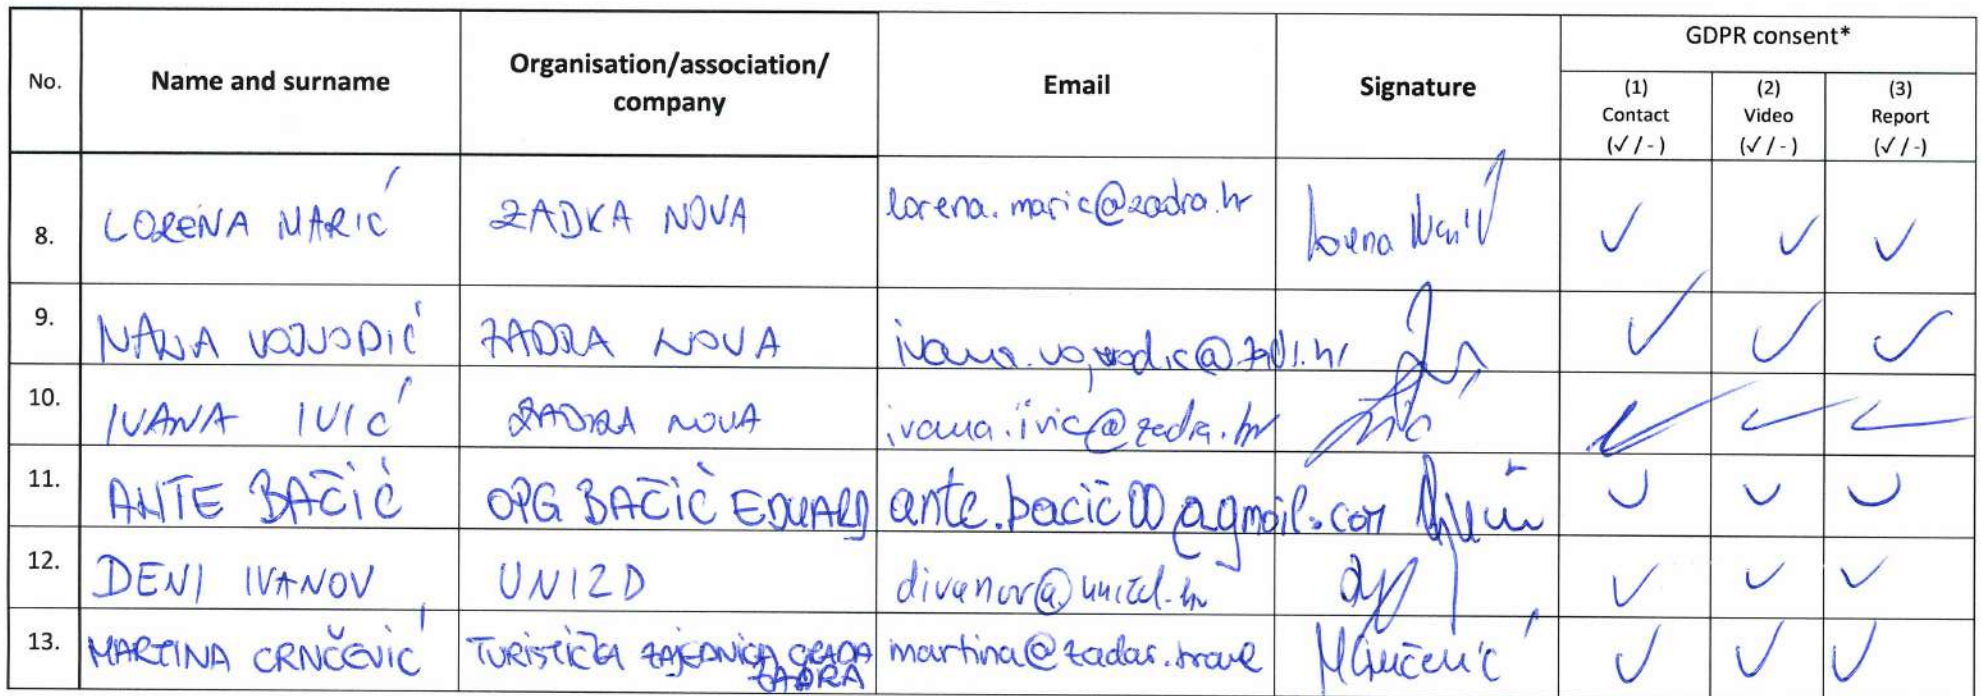 No. Name and surname Organisation/association/ company Email Signature GDPR consent*
(1) Contact (✓/-) (2) Video (✓/-) (3) Report (✓/-)
8. LORENA MARIĆ ZADRA NOVA lorena.maric@zadra.hr Lorena Marić ✓ ✓ ✓
9. IVANA VOJVODIĆ ZADRA NOVA ✓ ✓ ✓
10. IVANA IVIĆ ZADRA NOVA ivana.ivic@zadra.hr ✓ ✓ ✓
11. ANTE BAČIĆ OPG BAČIĆ EDUARD ante.bacic00@gmail.com ✓ ✓ ✓
12. DENI IVANOV UNIZD divanov@unizd.hr ✓ ✓ ✓
13. MARTINA CRNČEVIĆ TURISTIČKA ZAJEDNICA GRADA ZADRA martina@zadar.travel ✓ ✓ ✓